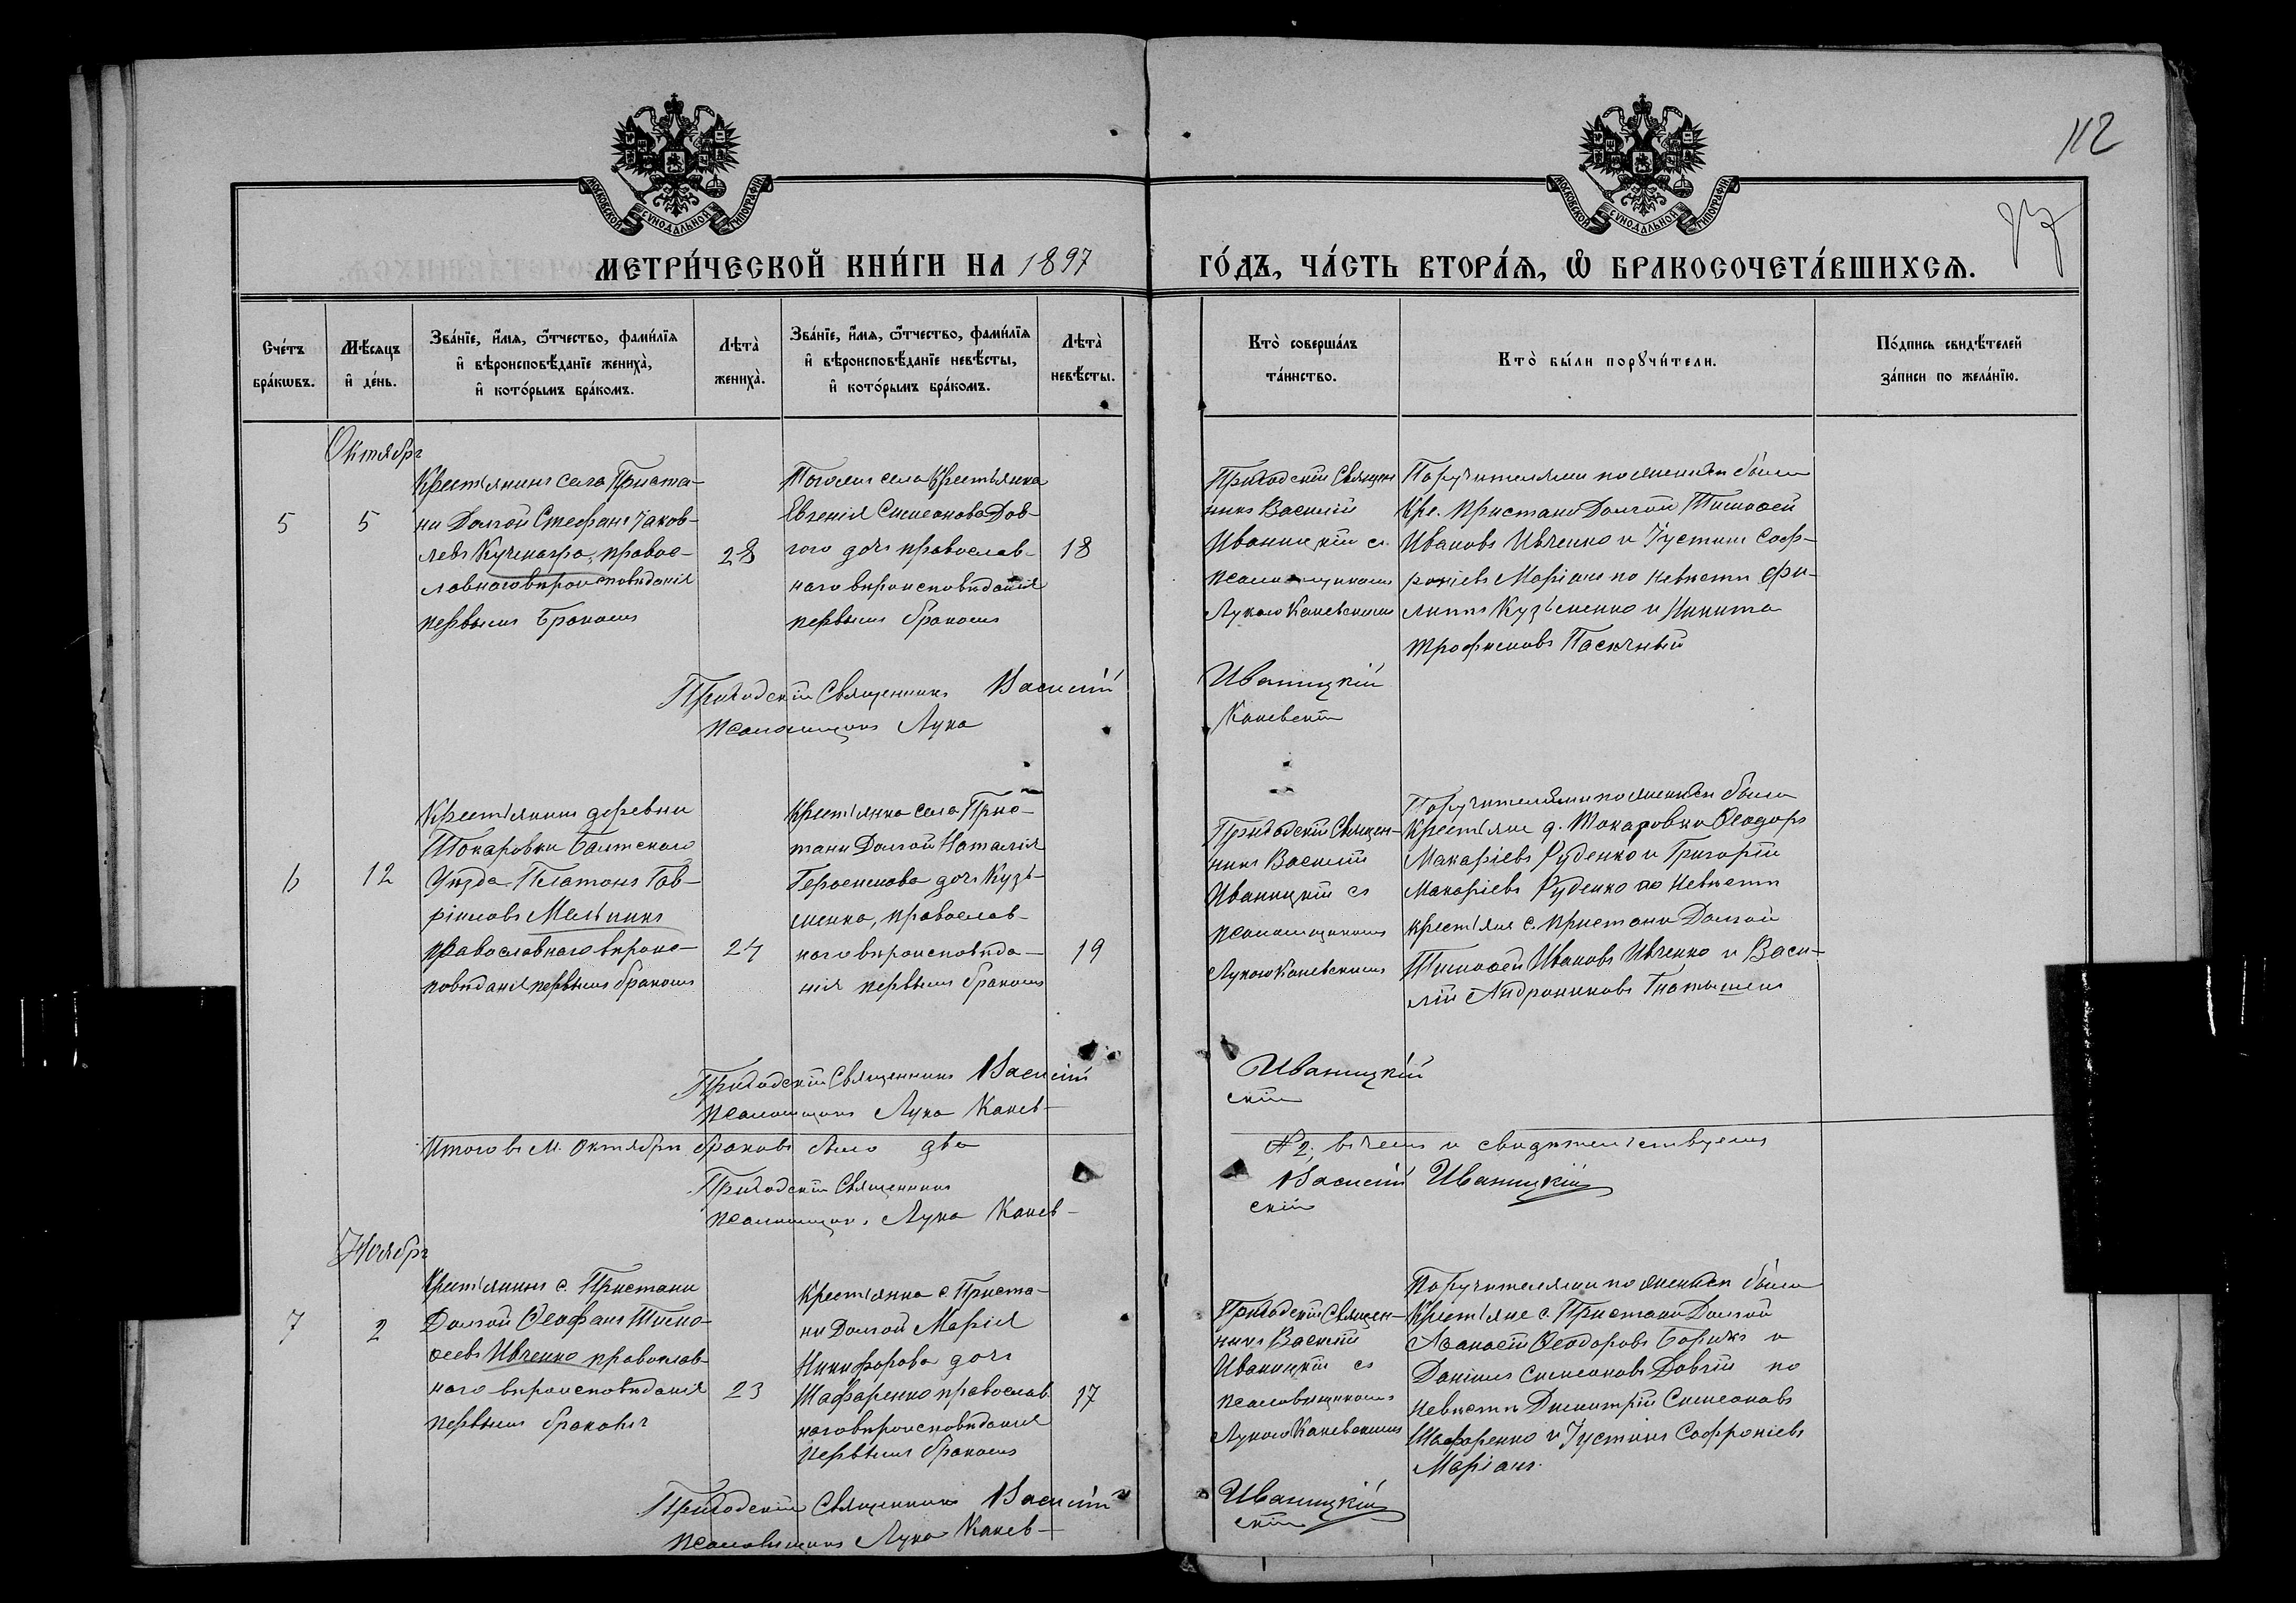 112
МОСКОВСКОЙ СѴНОДАЛЬНОЙ ТИПОГРАФІИ
МОСКОВСКОЙ СѴНОДАЛЬНОЙ ТИПОГРАФІИ
МЕТРИ́ЧЕСКОЙ КНИ́ГИ НА 1897 ГО́ДЪ, ЧА́СТЬ ВТОРА́Ѧ, Ѽ БРАКОСОЧЕТА́ВШИХСѦ.
Сче́тъ
бра́кѡвъ.
Мѣ́сѧцъ
и҆ де́нь.
Зва́нїе, и҆́мѧ, ѻ҆́тчество, фами́лїѧ
и҆ вѣроисповѣ́данїе жениха̀,
и҆ кото́рымъ бра́комъ.
Лѣта̀
жениха̀.
Зва́нїе, и҆́мѧ, ѻ҆́тчество, фами́лїѧ
и҆ вѣроисповѣ́данїе невѣ́сты,
и҆ кото́рымъ бра́комъ.
Лѣта̀
невѣ́сты.
Кто̀ соверша́лъ
та́инство.
Кто̀ бы́ли порꙋчи́тели.
По́дпись свидѣ́телей
за́писи по жела́нїю.
Октябрь
5
5
Крестьянинъ села Приста-
ни Долгой Стефанъ Іаков-
левъ Кучмагра, правос-
лавнаго вѣроисповѣданія
первымъ бракомъ
28
Тогоже села крестьянка
Евгенія Симеонова Дов-
гого дочь православ-
наго вѣроисповѣданія
первымъ бракомъ
18
Приходскій Священ
никъ Василій
Иваницкій съ
псаломщикомъ
Лукою Каневскимъ
Поручителями по женихѣ были
Кре. Пристани Долгой Тимоѳей
Ивановъ Ивченко и Іустинъ Соф-
роніевъ Маріанъ по невѣстѣ Фи-
липпъ Кузьменко и Никита
Трофимовъ Пасѣчный
Приходскій Священникъ Василій Иваницкій
псаломщикъ Лука Каневскій
6
12
Крестьянинъ деревни
Токаровки Балтскаго
Уѣзда Платонъ Гав-
ріиловъ Мельникъ
православнаго вѣроис-
повѣданія первымъ бракомъ
24
Крестьянка села Прис-
тани Долгой Наталія
Герасимова дочь Кузь-
менка, православ-
наго вѣроисповѣда-
нія первымъ бракомъ
19
Приходскій Священ-
никъ Василій
Иваницкій съ
псаломщикомъ
Лукою Каневскимъ
Поручителями по женихѣ были
Крестьяне д. Токаровки Ѳеодоръ
Макаріевъ Руденко и Григорій
Макаріевъ Руденко по невѣстѣ
крестьяне с. Пристани Долгой
Тимоѳей Ивановъ Ивченко и Васи-
лій Андрониковъ
Приходскій Священникъ Василій Иваницкій
псаломщикъ Лука Канев-
скій
Итого въ м. Октябрѣ браковъ было два № 2; въ чемъ и свидѣтельствуемъ
Приходскій Священникъ Василій Иваницкій
псаломщикъ Лука Канев-
скій
Ноябрь
7
2
Крестьянинъ с. Пристани
Долгой Ѳеофанъ Тимо-
ѳеевъ Ивченко православ-
наго вѣроисповѣданія
первымъ бракомъ
23
Крестьянка с. Приста-
ни Долгой Марія
Никифорова дочь
Шафаренко православ
наго вѣроисповѣданія
первымъ бракомъ
17
Приходскій Священ-
никъ Василій
Иваницкій съ
псаломщикомъ
Лукою Каневскимъ
Поручителями по женихѣ были
Крестьяне с. Пристани Долгой
Аѳанасій Ѳеодоровъ и
Даніилъ Симеоновъ Довгій по
невѣстѣ Димитрій Симеоновъ
Шафаренко и Іустинъ Софроніевъ
Маріанъ.
Приходскій Священникъ Василій Иваницкій
псаломщикъ Лука Канев-
скій